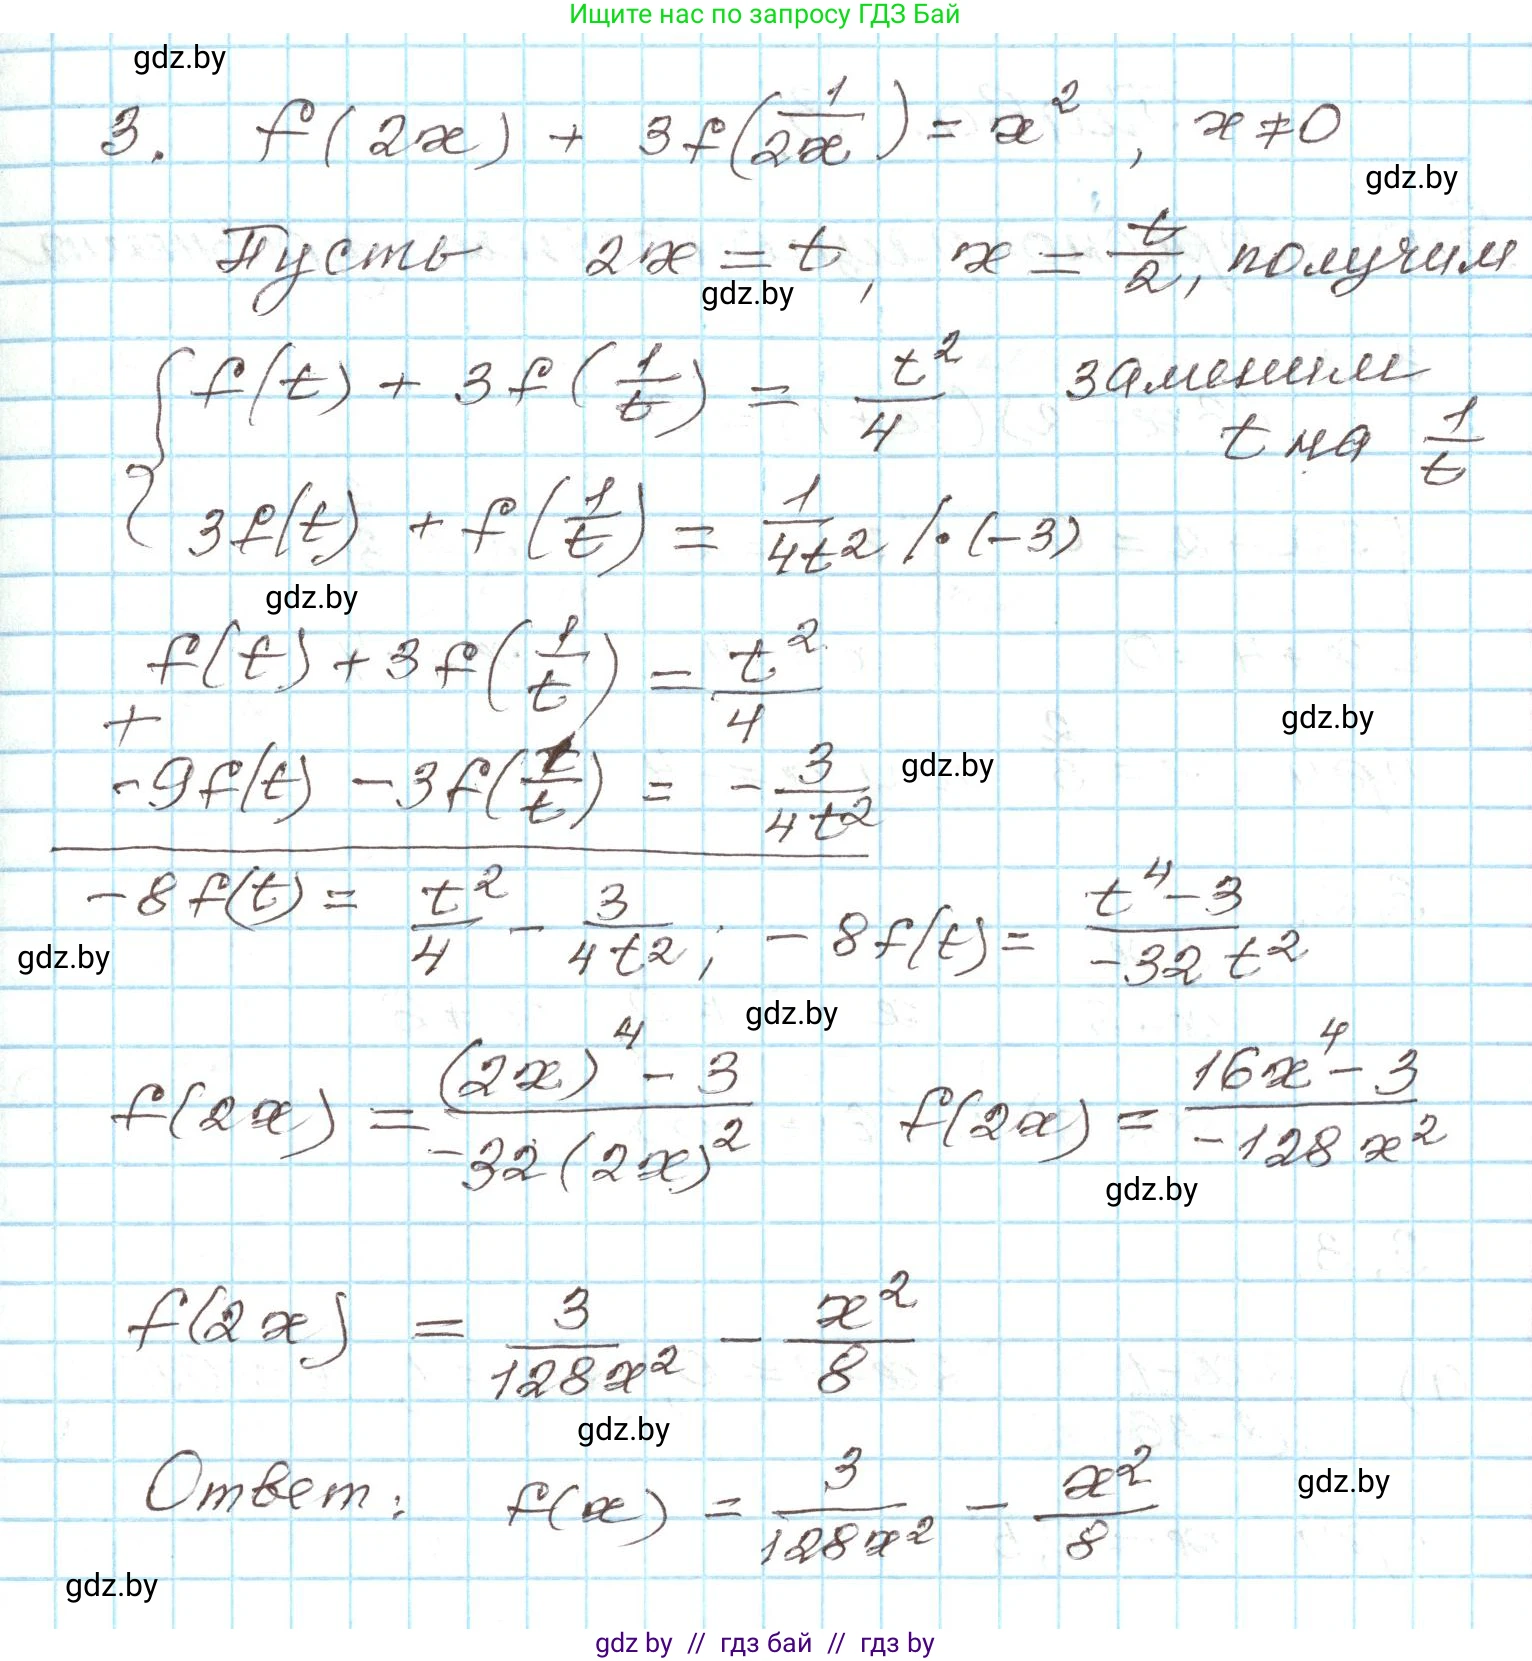 Ищите нас по запросу ГДЗ Бай
gdz.by
3. f(2x) + 3f(1/2x) = x², x≠0
gdz.by
Пусть 2x = t, x = t/2, получим
gdz.by
f(t) + 3f(1/t) = t²/4 заменим
t на 1/t
3f(t) + f(1/t) = 1/4t² /·(-3)
gdz.by
f(t) + 3f(1/t) = t²/4
+
gdz.by
-9f(t) - 3f(1/t) = - 3/4t²
gdz.by
-8f(t) = t²/4 - 3/4t²; -8f(t) = t⁴-3/-32t²
gdz.by
gdz.by
f(2x) = (2x)⁴ - 3/-32(2x)² f(2x) = 16x⁴-3/-128x²
gdz.by
f(2x) = 3/128x² - x²/8
gdz.by
Ответ: f(x) = 3/128x² - x²/8
gdz.by
gdz.by
gdz by // гдз бай // гдз by